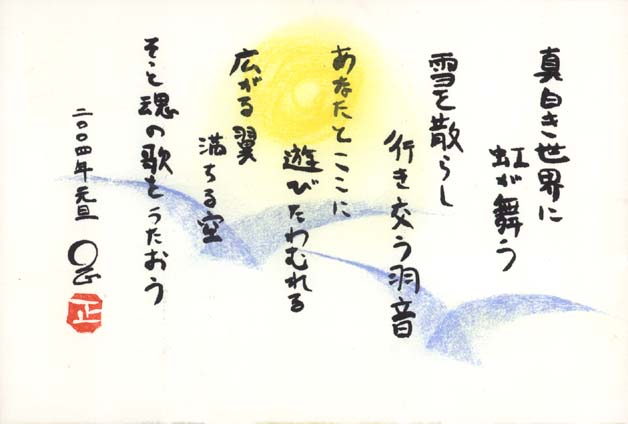 真白き世界に
虹が舞う
雪を散らし
行き交う羽音
あなたとここに
遊びたわむれる
広がる翼
満ちる空
そっと魂の歌をうたおう
二〇〇四年元旦
正